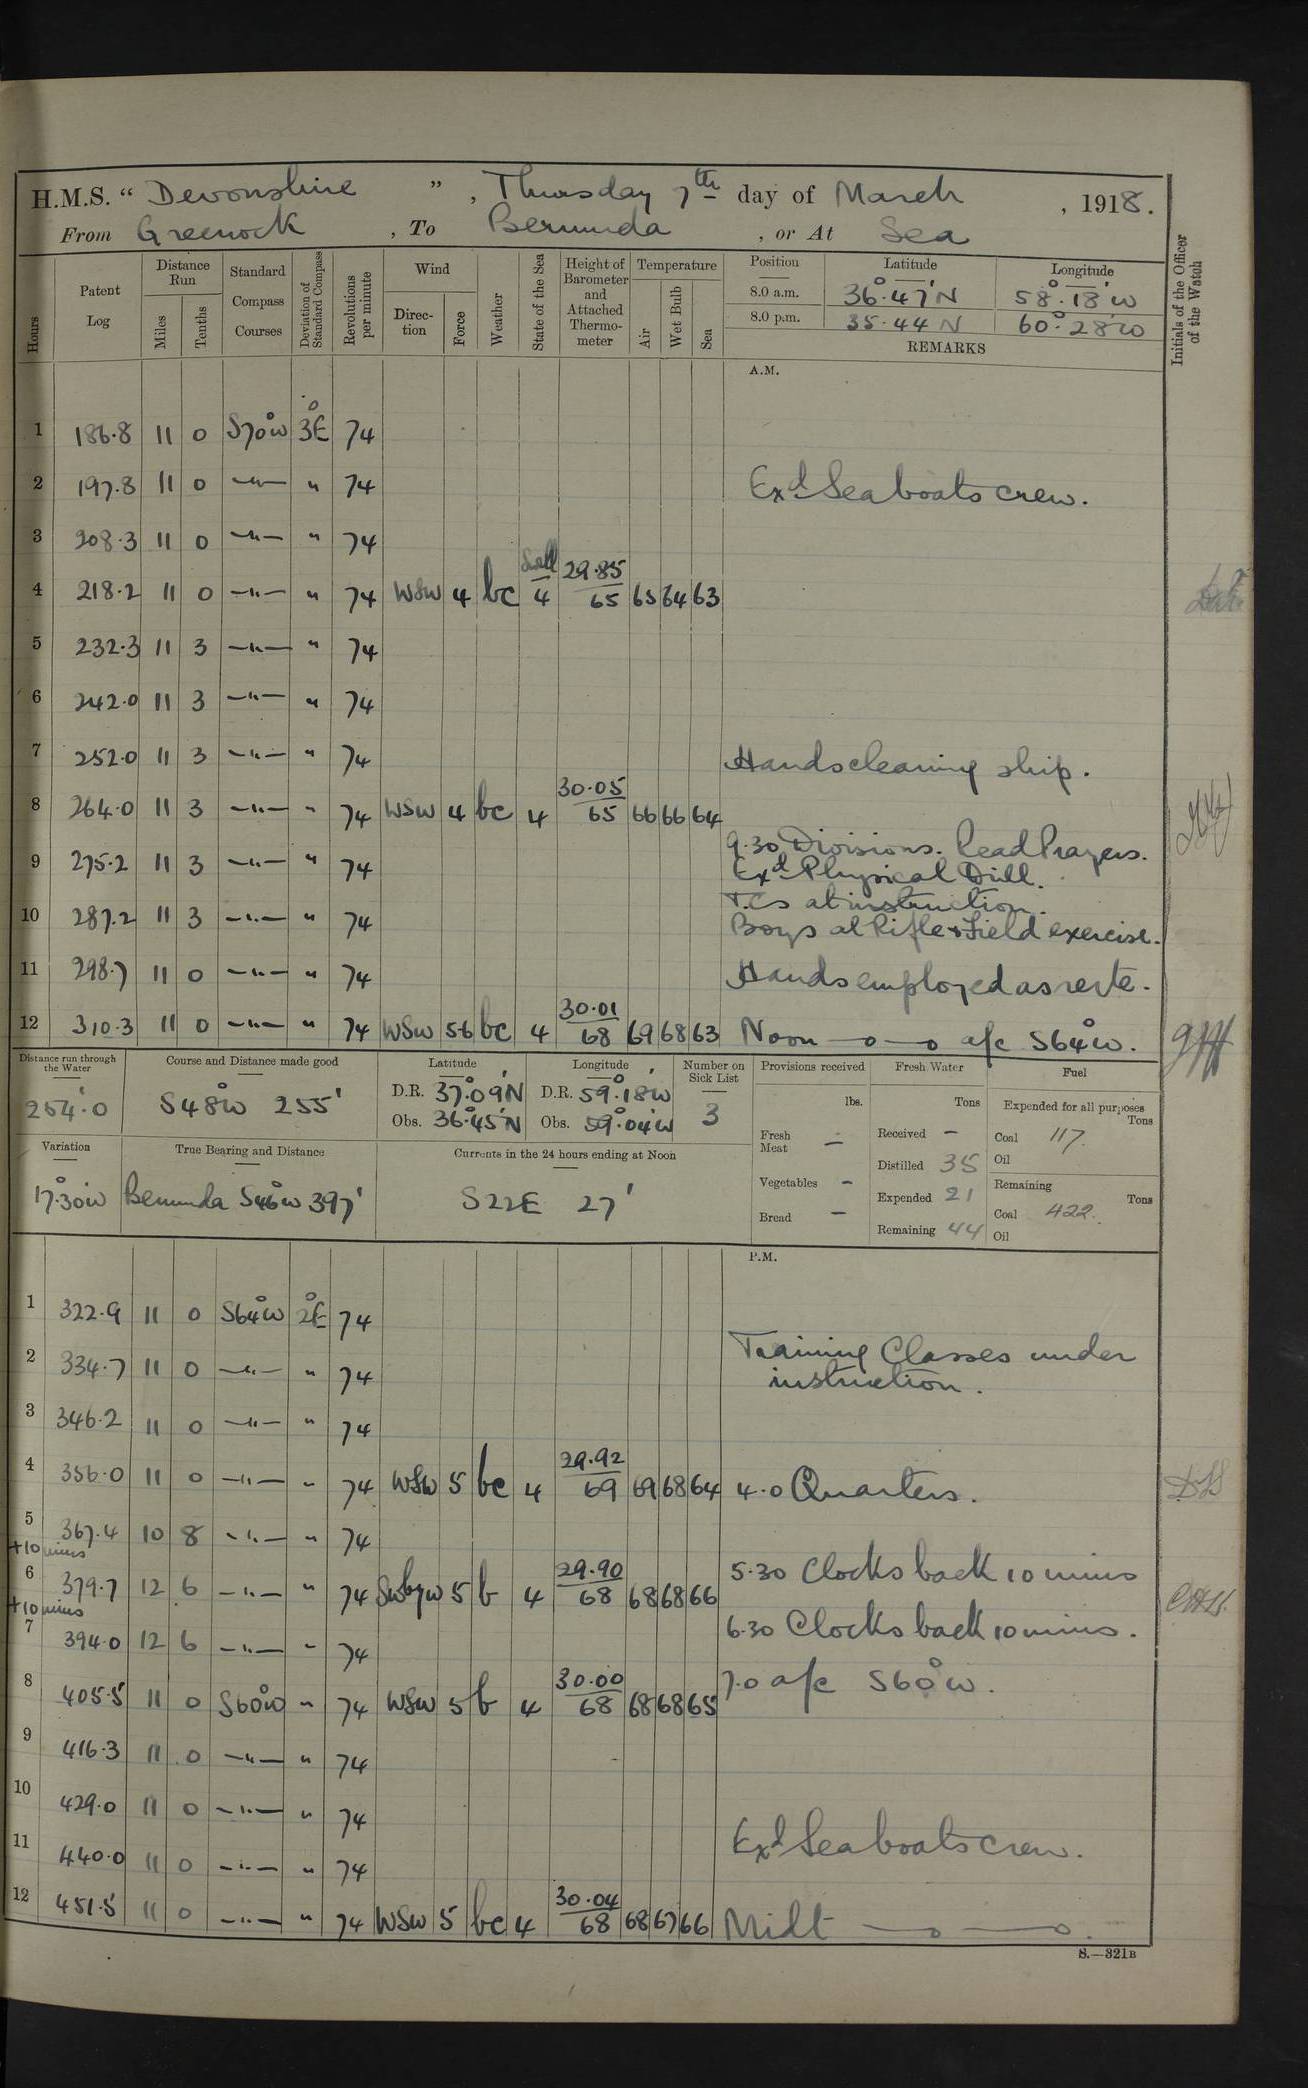 H.M.S. “ Devonshire ”, Thursday 7th day of March, 1918.
From Greenock, To Bermuda, or At Sea
Hours
Patent Log
Distance Run
Miles
Tenths
Standard Compass Courses
Deviation of Standard Compass
Revolutions per minute
Wind
Direction
Force
Weather
State of the Sea
Height of Barometer and Attached Thermometer
Temperature
Air
Wet Bulb
Sea
Position Latitude Longitude
8.0 a.m. 36°·47'N 58°·18'W
8.0 p.m. 35·44 N 60°·28'W
REMARKS
Initials of the Officer of the Watch
A.M.
1 186·8 11 0 S70°W 3°E 74
2 197·8 11 0 —"— " 74 Exd Sea boats crew.
3 208·3 11 0 —"— " 74
4 218·2 11 0 —"— " 74 WSW 4 bc Swell 4 29·85 65 65 64 63
5 232·3 11 3 —"— " 74
6 242·0 11 3 —"— " 74
7 252·0 11 3 —"— " 74 Hands cleaning ship.
8 264·0 11 3 —"— " 74 WSW 4 bc 4 30·05 65 66 66 64
9 275·2 11 3 —"— " 74 9·30 Divisions. Read Prayers.
Exd Physical Drill.
T.Cs at instruction.
10 287·2 11 3 —"— " 74 Boys at Rifle & Field exercise.
11 298·7 11 0 —"— " 74 Hands employed as reqte.
12 310·3 11 0 —"— " 74 WSW 5·6 bc 4 30·01 68 69 68 63 Noon —o—o a/c S64°W.
Distance run through the Water
254'·0
Course and Distance made good
S48°W 255'
Latitude
D.R. 37°·09'N
Obs. 36°·45'N
Longitude
D.R. 59°·18'W
Obs. 59°·04'W
Number on Sick List
3
Provisions received
lbs.
Fresh Meat —
Vegetables —
Bread —
Fresh Water
Tons
Received —
Distilled 35
Expended 21
Remaining 44
Fuel
Expended for all purposes
Tons
Coal 117.
Oil
Remaining
Tons
Coal 422.
Oil
Variation
17°·30'W
True Bearing and Distance
Bermuda S46°W 397'
Currents in the 24 hours ending at Noon
S22E 27'
P.M.
1 322·9 11 0 S64°W 2°E 74
2 334·7 11 0 —"— " 74 Training Classes under
instruction.
3 346·2 11 0 —"— " 74
4 356·0 11 0 —"— " 74 WSW 5 bc 4 29·92 69 69 68 64 4·0 Quarters.
5 367·4 10 8 —"— " 74
+10 mins
6 379·7 12 6 —"— " 74 SWbyW 5 b 4 29·90 68 68 68 66 5·30 Clocks back 10 mins
+10 mins
7 394·0 12 6 —"— " 74 6·30 Clocks back 10 mins.
8 405·5 11 0 S60°W " 74 WSW 5 b 4 30·00 68 68 68 65 7·0 a/c S60°W.
9 416·3 11 0 —"— " 74
10 429·0 11 0 —"— " 74
11 440·0 11 0 —"— " 74 Exd Sea boats crew.
12 451·5 11 0 —"— " 74 WSW 5 bc 4 30·04 68 68 67 66 Midt —o—o.
S.—321B